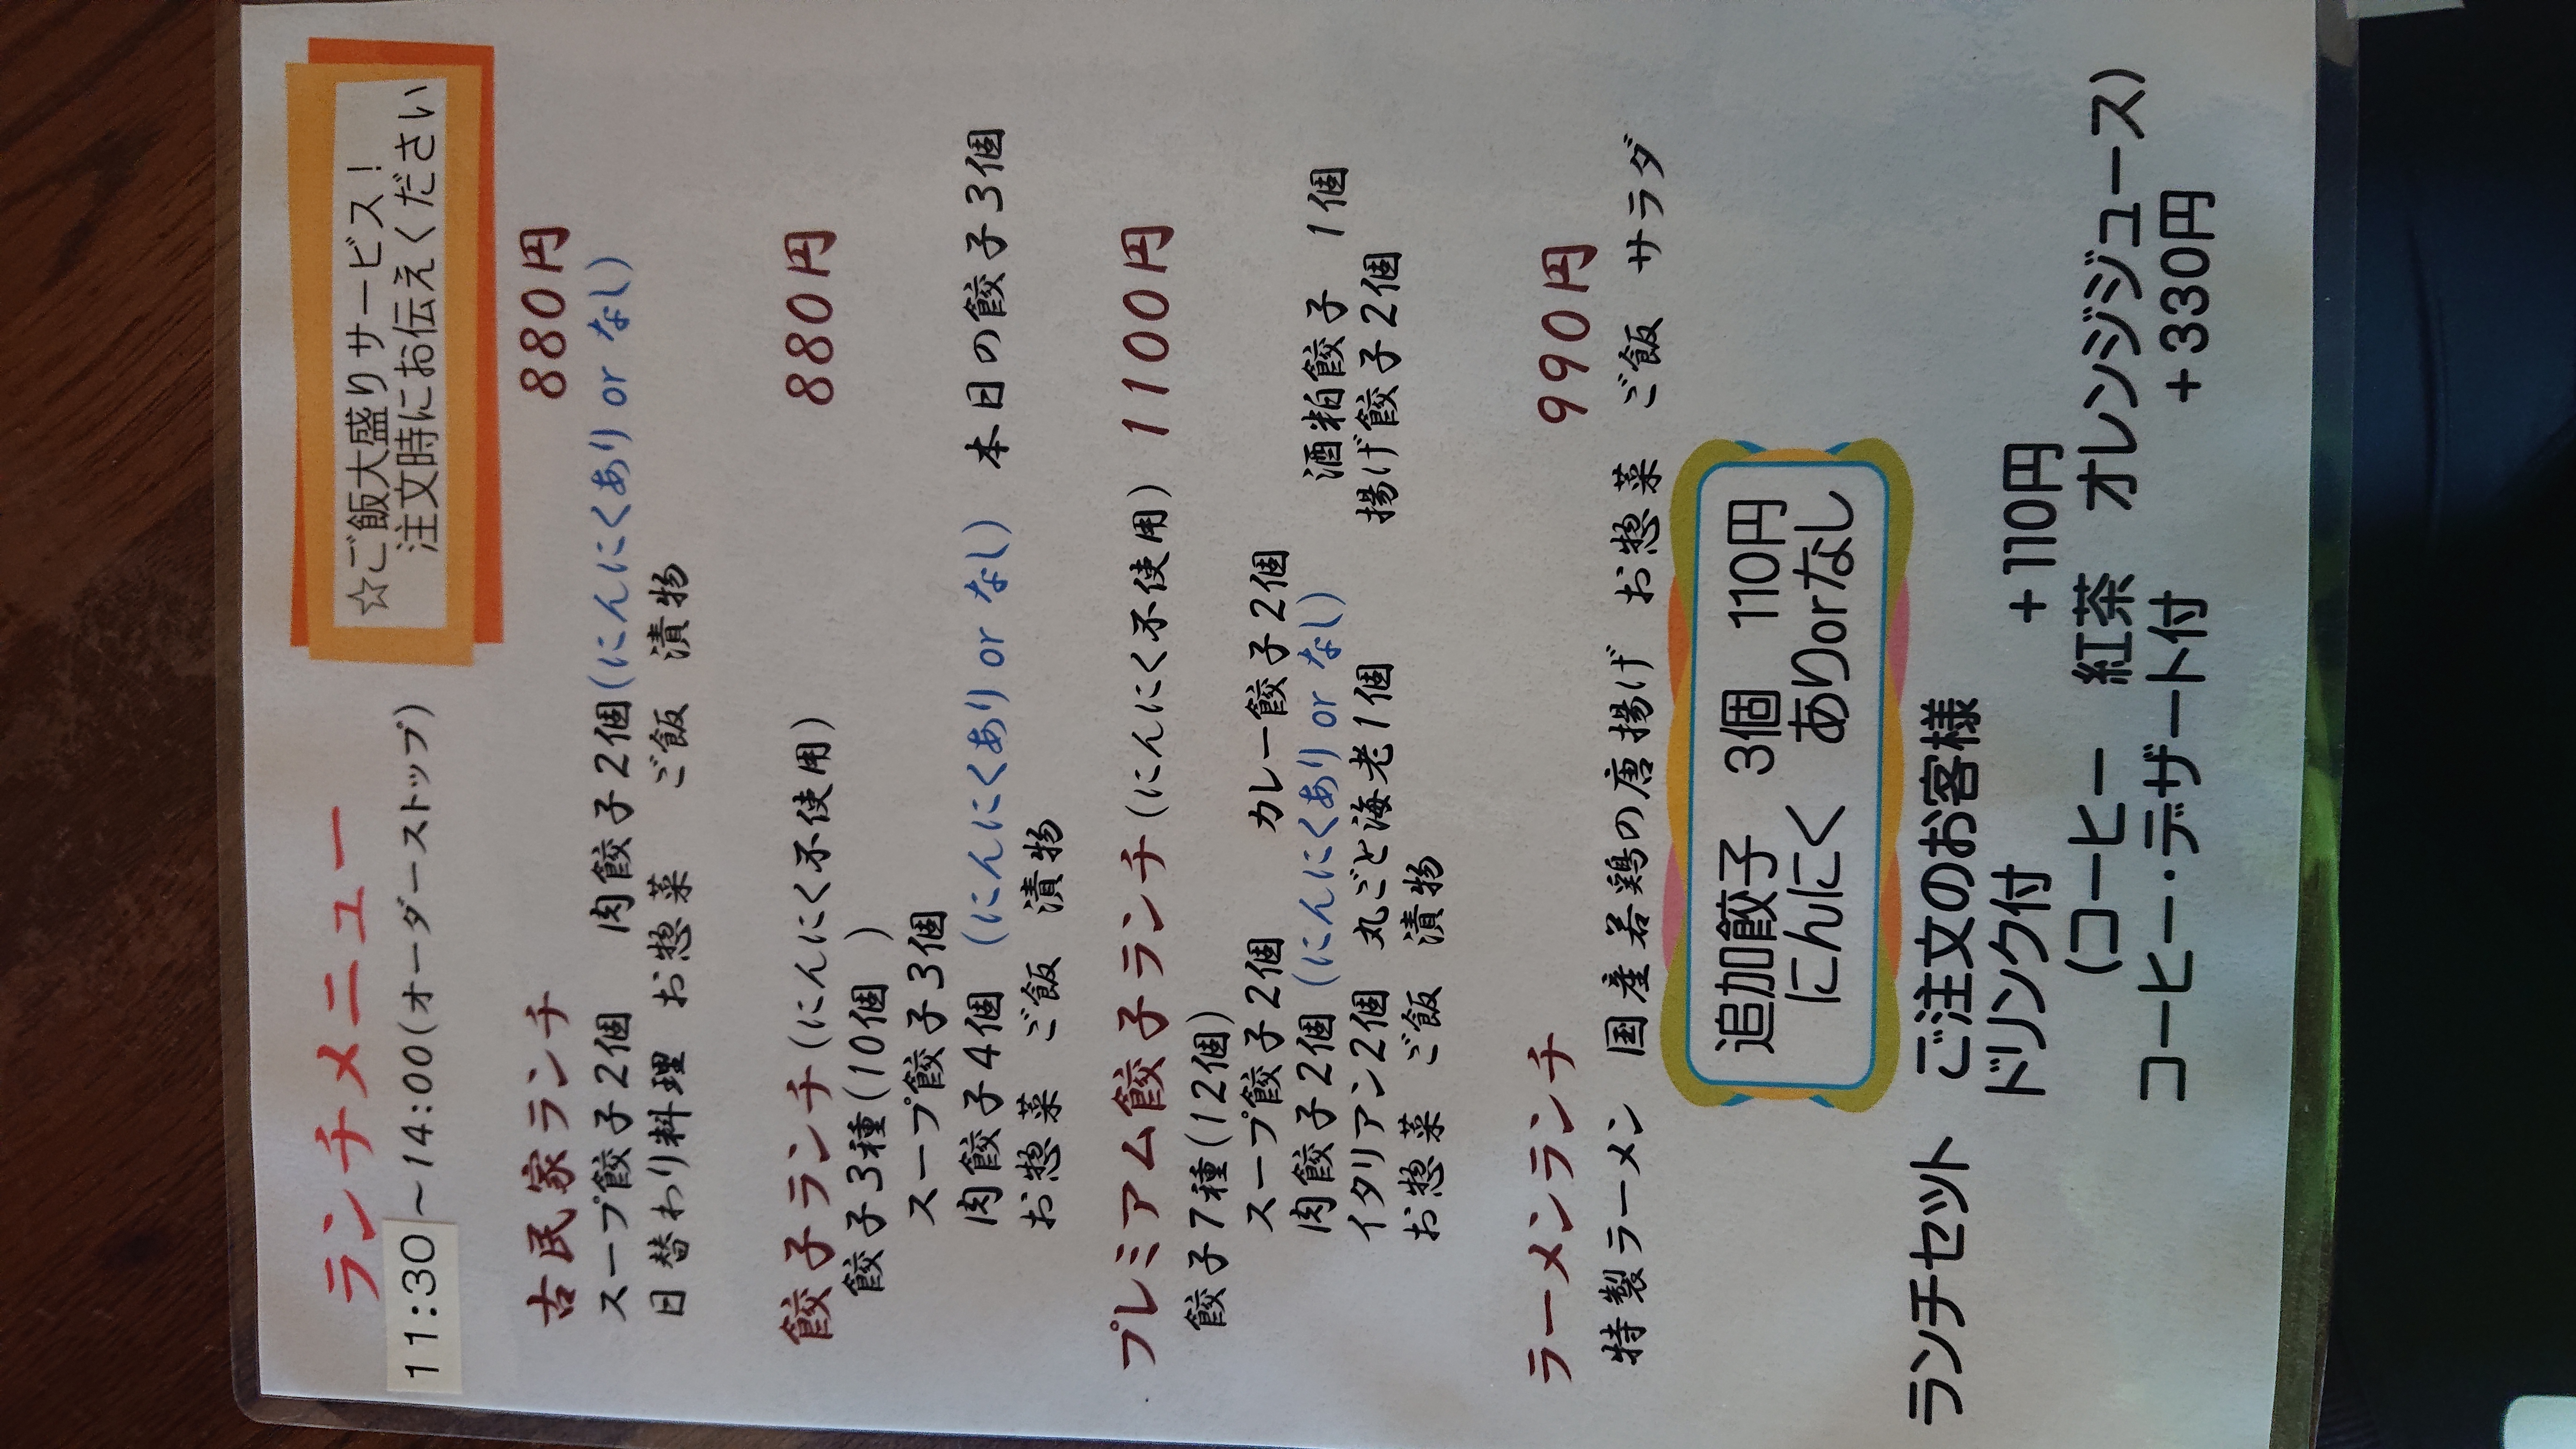 ランチメニュー
11:30～14:00(オーダーストップ)
☆ご飯大盛りサービス！
注文時にお伝えください
古民家ランチ 880円
スープ餃子2個 肉餃子2個(にんにくあり or なし)
日替わり料理 お惣菜 ご飯 漬物
餃子ランチ(にんにく不使用) 880円
餃子3種(10個 )
スープ餃子3個
肉餃子4個 (にんにくあり or なし) 本日の餃子3個
お惣菜 ご飯 漬物
プレミアム餃子ランチ(にんにく不使用) 1100円
餃子7種(12個)
スープ餃子2個 カレー餃子2個 酒粕餃子 1個
肉餃子2個(にんにくあり or なし) 揚げ餃子2個
イタリアン2個 丸ごと海老1個
お惣菜 ご飯 漬物
ラーメンランチ 990円
特製ラーメン 国産若鶏の唐揚げ お惣菜 ご飯 サラダ
追加餃子 3個 110円
にんにく ありorなし
ランチセット ご注文のお客様
ドリンク付 +110円
(コーヒー 紅茶 オレンジジュース)
コーヒー・デザート付 +330円